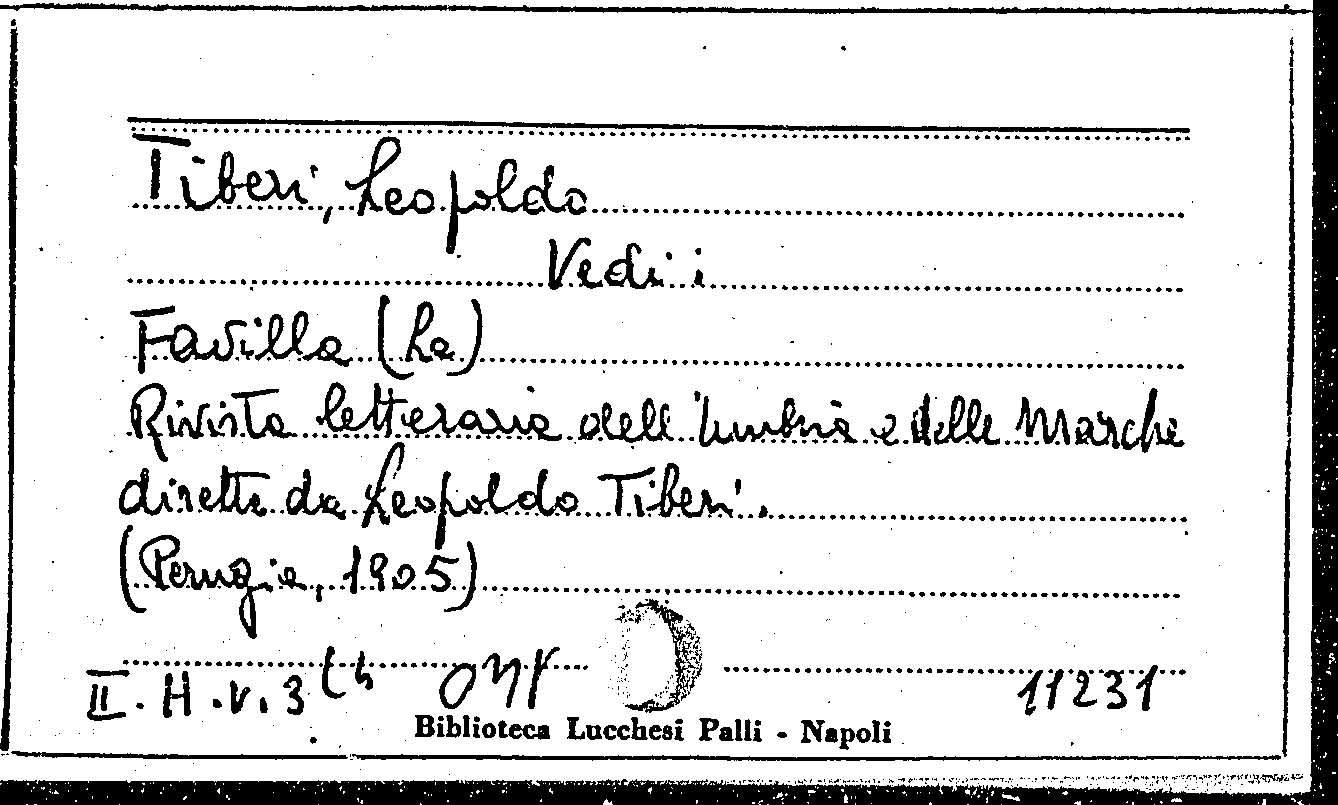 Tiberi, Leopoldo
Vedi:
Favilla (La)
Rivista letteraria dell'Umbria e delle Marche
diretta da Leopoldo Tiberi.
(Perugia, 1905)
II. H. V. 3 11231
Biblioteca Lucchesi Palli - Napoli